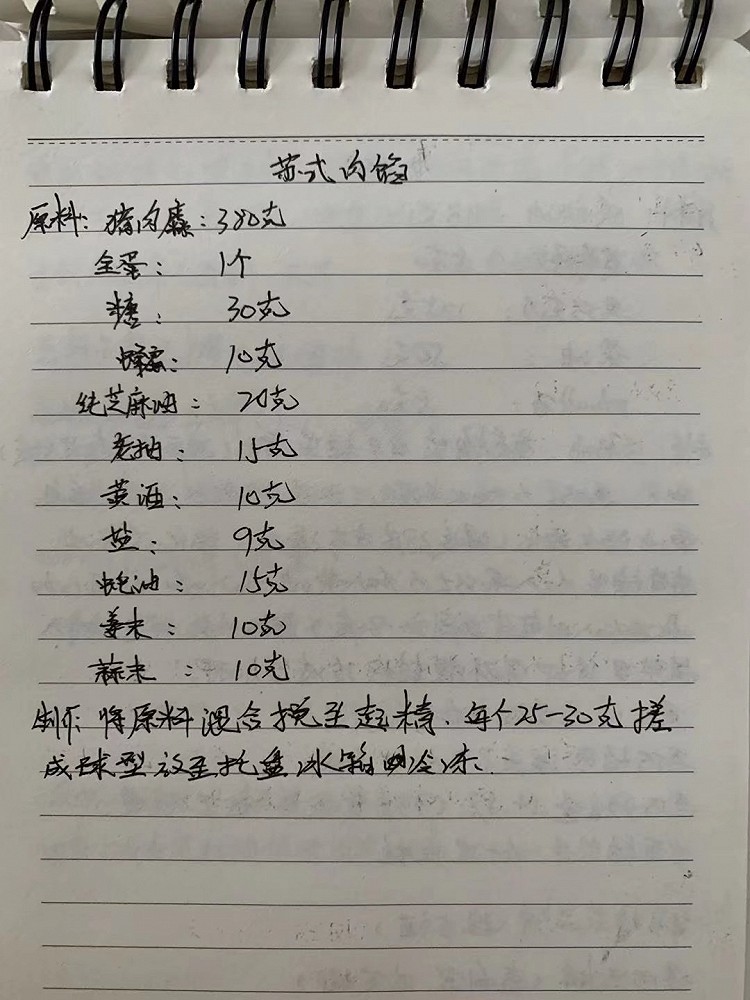 苏式肉馅
原料: 猪肉糜: 380克
全蛋: 1个
糖: 30克
蜂蜜: 10克
纯芝麻油: 20克
老抽: 15克
黄酒: 10克
盐: 9克
蚝油: 15克
姜末: 10克
蒜末: 10克
制作: 将原料混合搅至起精. 每个25-30克搓
成球型放至托盘冰箱内冷冻.